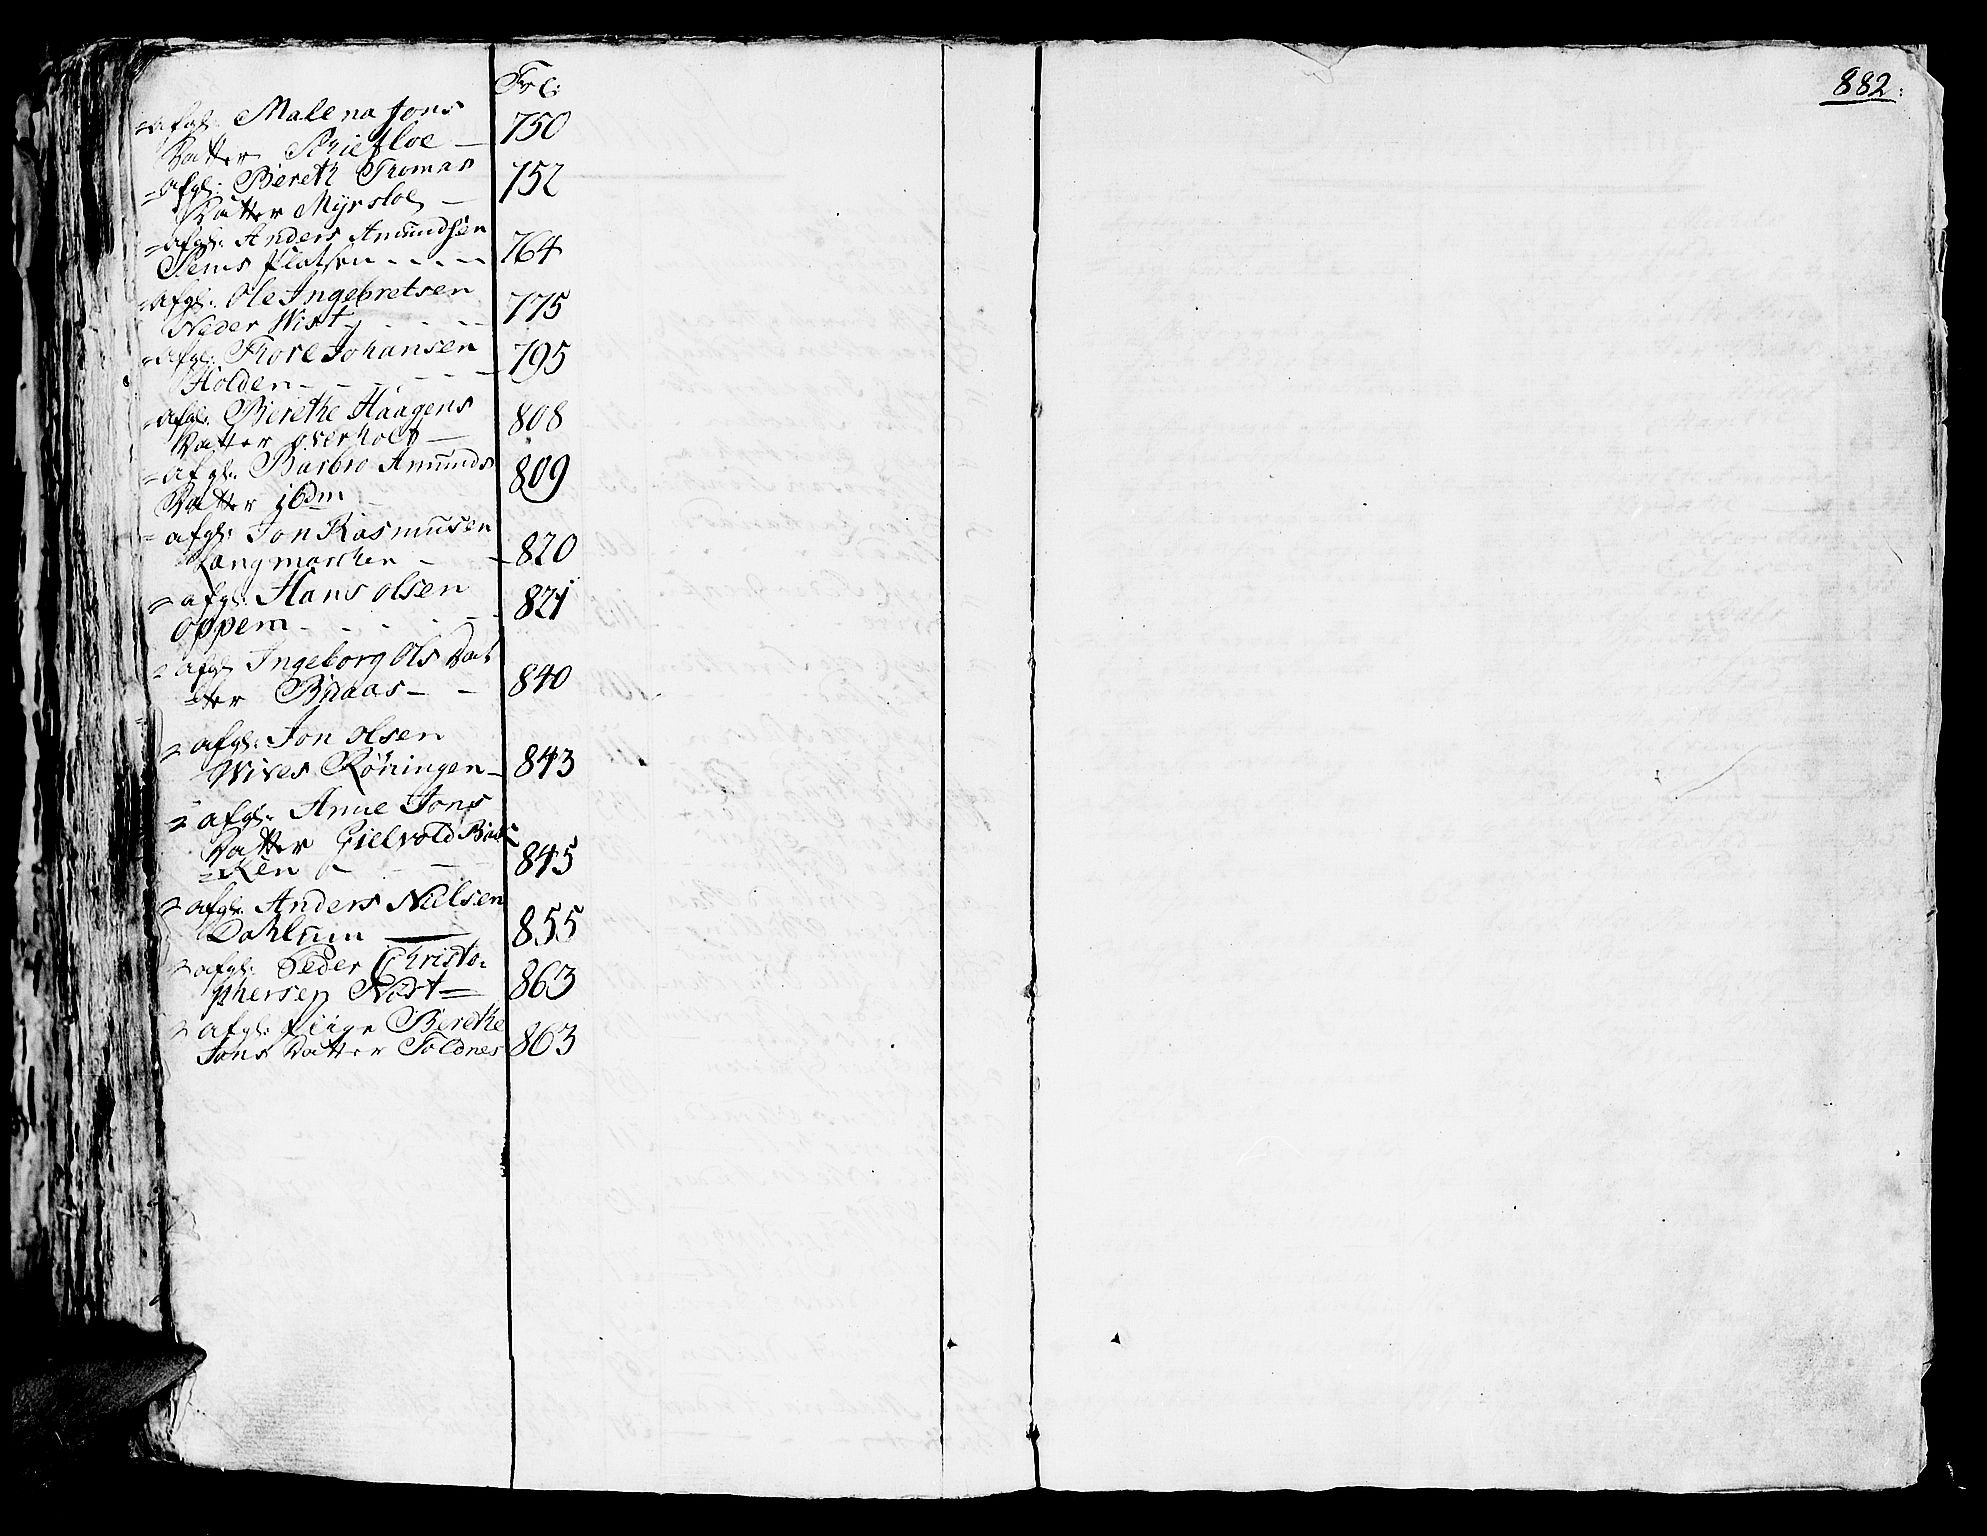 Fol:
882:
afgl: Malena Jons
Datter Schiefloe — 750
afgl: Bereth Thomas
Datter Myrsloe — 752
afgl: Anders Amundsen
Sems Platsen - - - - 764
afgl: Ole Ingebretsen
Neder Wist - - - - 775
afgl: Thore Johansen
Holden - - - - - 795
afgl: Berethe Haagens
Datter overholt — 808
afgl: Barbro Amunds
Datter ibdm — 809
afgl: Jon Rasmusen
Langmarchen — - 820
afgl: Hans olsen
oppem - - - - - 821
afgl: Ingeborg Ols Dat
ter Braas — - 840
afgl: Jon olsen
Wives Röhningen - 843
afgl: Anne Jons
Datter Gielvold Bak
ken - - - 845
afgl: Anders Nielsen
Dahlum — 855
afgl: Peder Christo
phersen Nöst = 863
afgl: Berethe
Jons Datter Toldnes 863